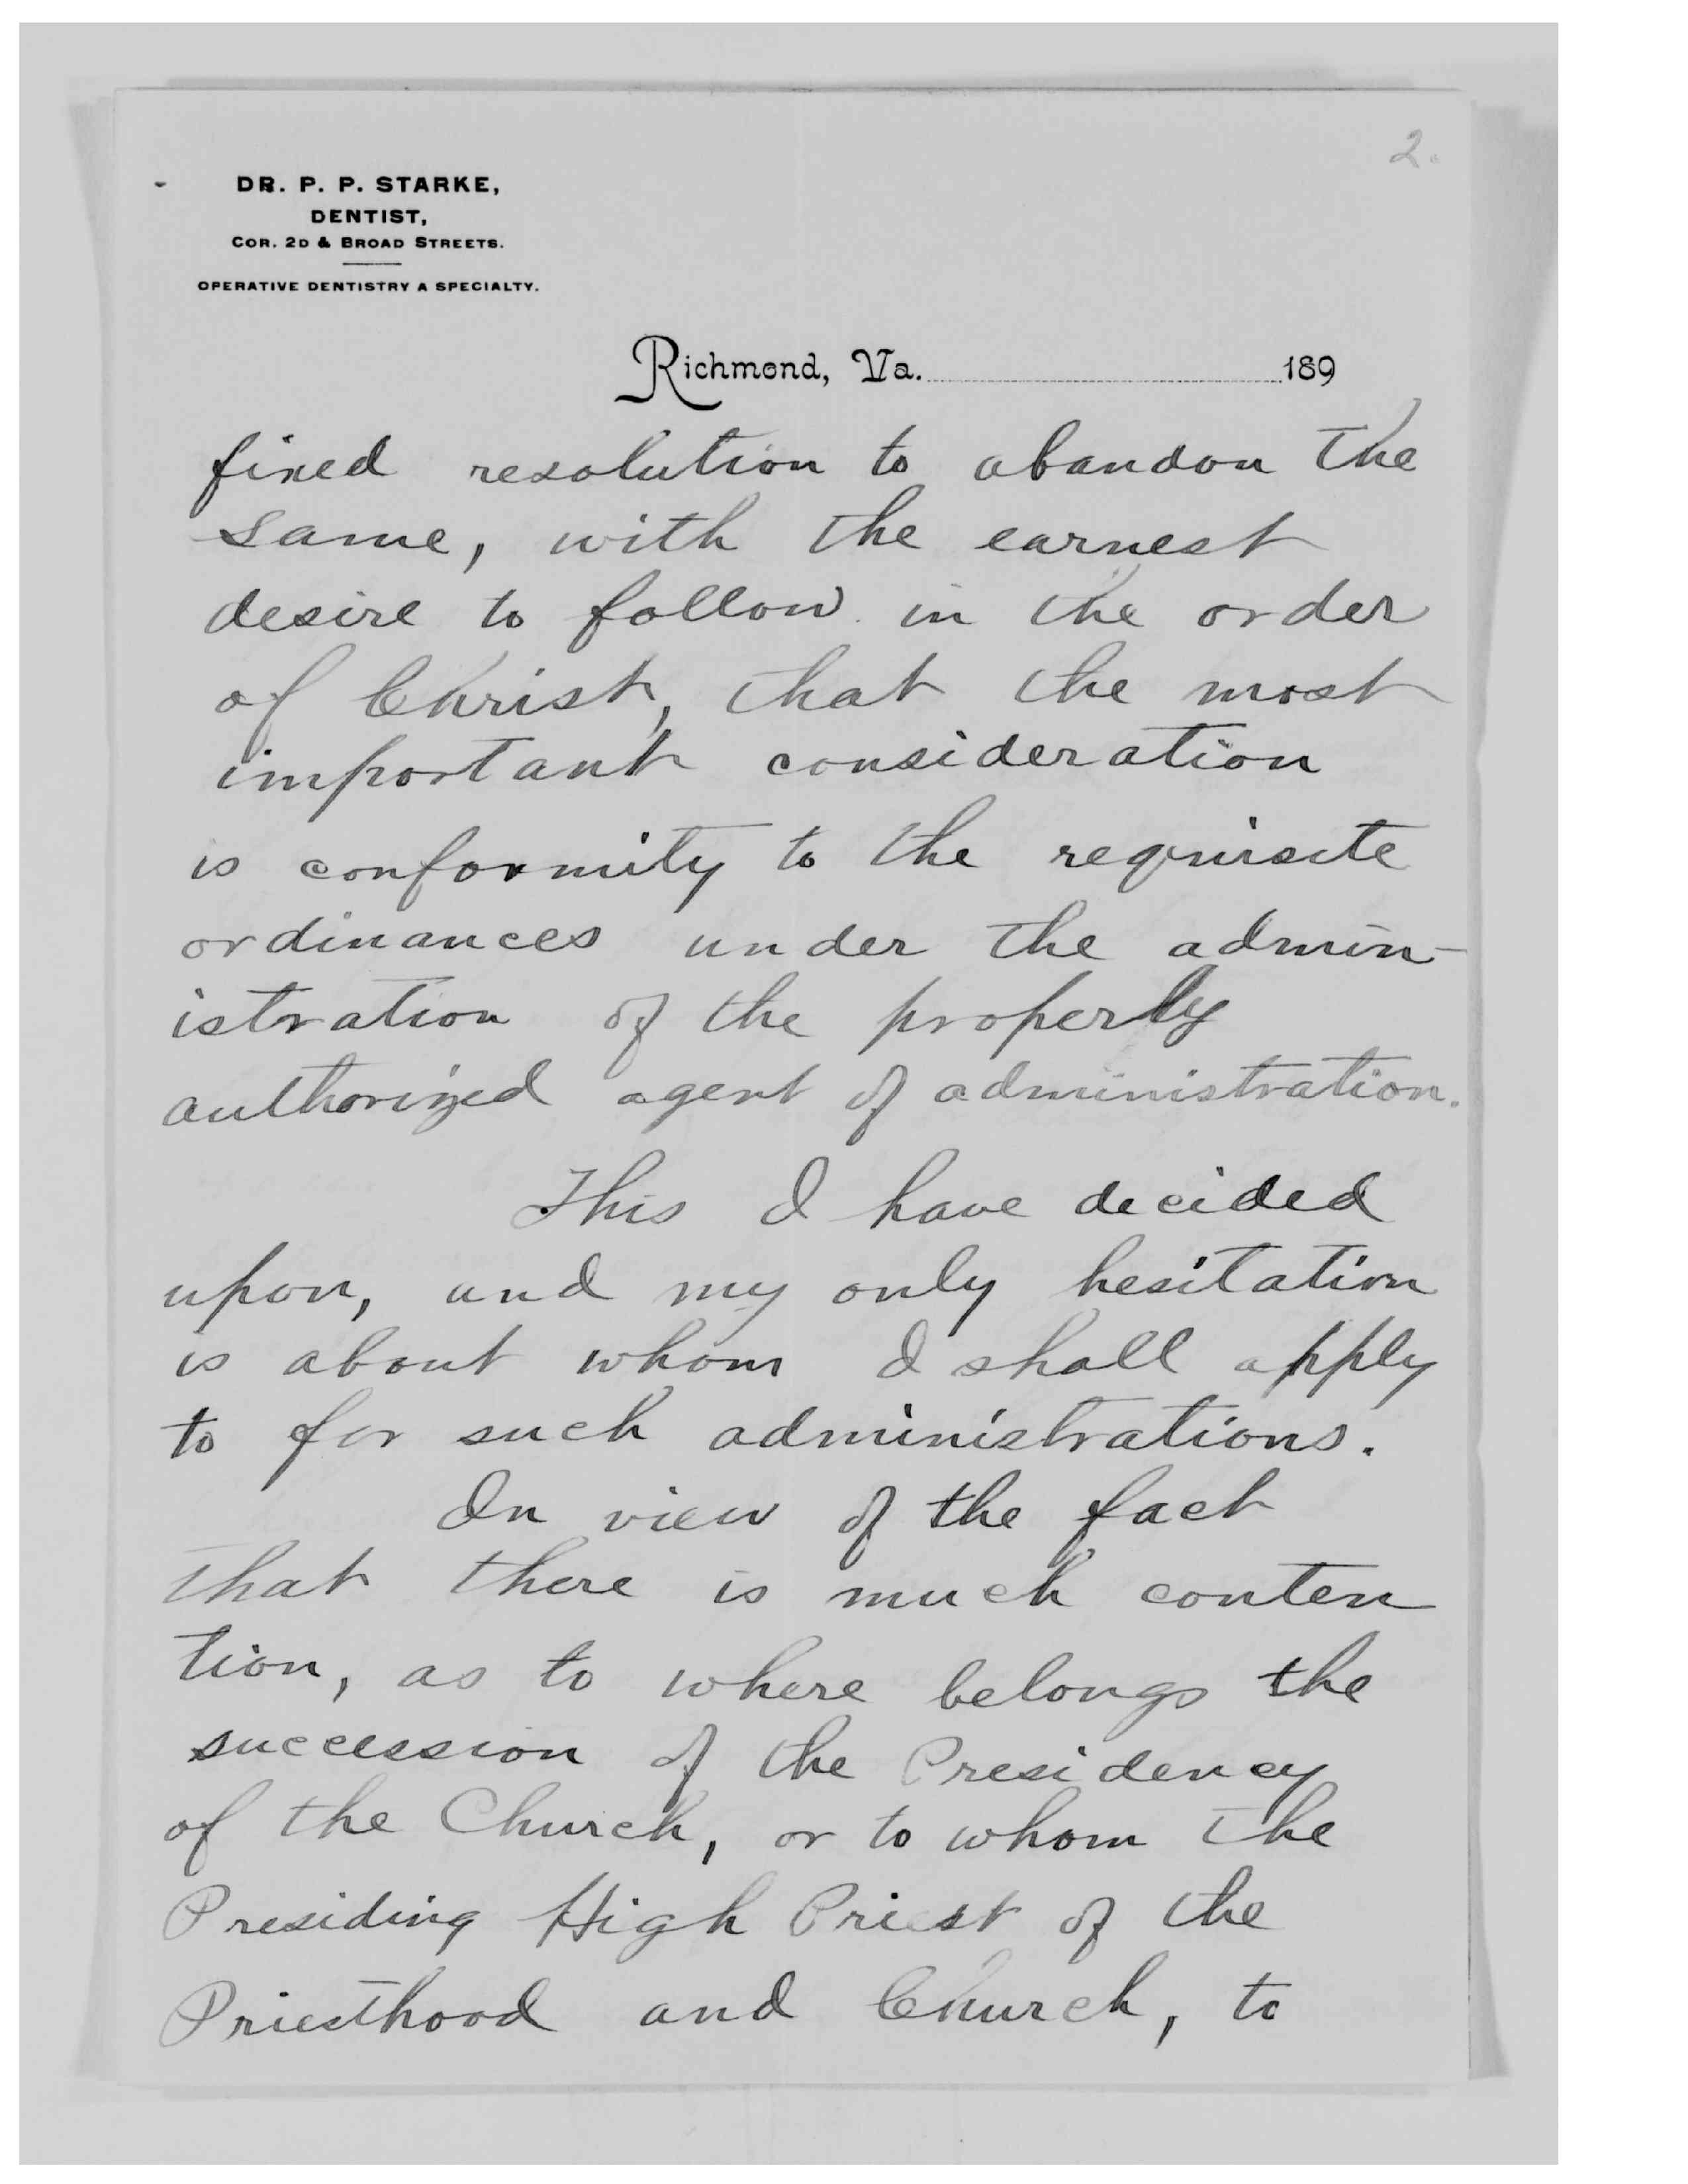 2.
DR. P. P. STARKE,
DENTIST,
COR. 2D & BROAD STREETS.
OPERATIVE DENTISTRY A SPECIALTY.
Richmond, Va. 189
fixed resolution to abandon the
same, with the earnest
desire to follow in the order
of Christ, that the most
important consideration
is conformity to the requisite
ordinances under the admin-
istration of the properly
authorized agent of administration.
This I have decided
upon, and my only hesitation
is about whom I shall apply
to for such administrations.
In view of the fact
that there is much conten
tion, as to where belongs the
succession of the Presidency
of the Church, or to whom the
Presiding High Priest of the
Priesthood and Church, to